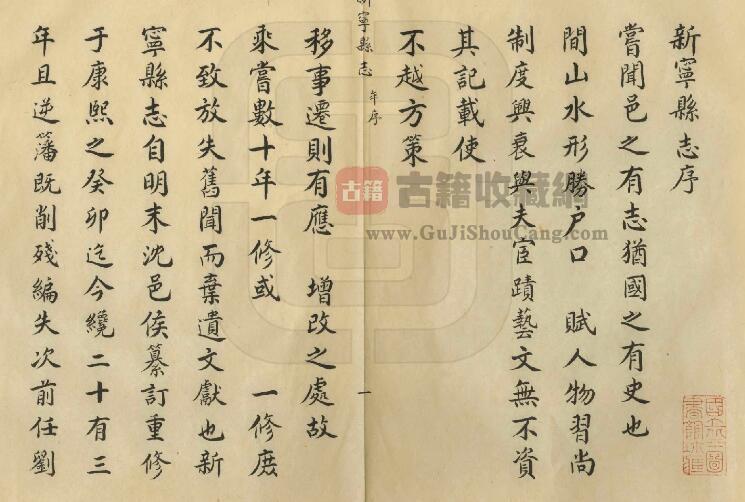 新寧縣志序
嘗聞邑之有志猶國之有史也
間山水形勝戶口 賦人物習尚
制度興衰與夫宦蹟藝文無不資
其記載使
不越方策
寧縣志 年序
一
移事遷則有應 增改之處故
乘嘗數十年一修或 一修庶
不致放失舊聞而棄遺文獻也新
寧縣志自明末沈邑侯纂訂重修
于康熙之癸卯迄今纔二十有三
年且逆藩既削殘編失次前任劉
古籍
古籍收藏網
www.GuJiShouCang.com